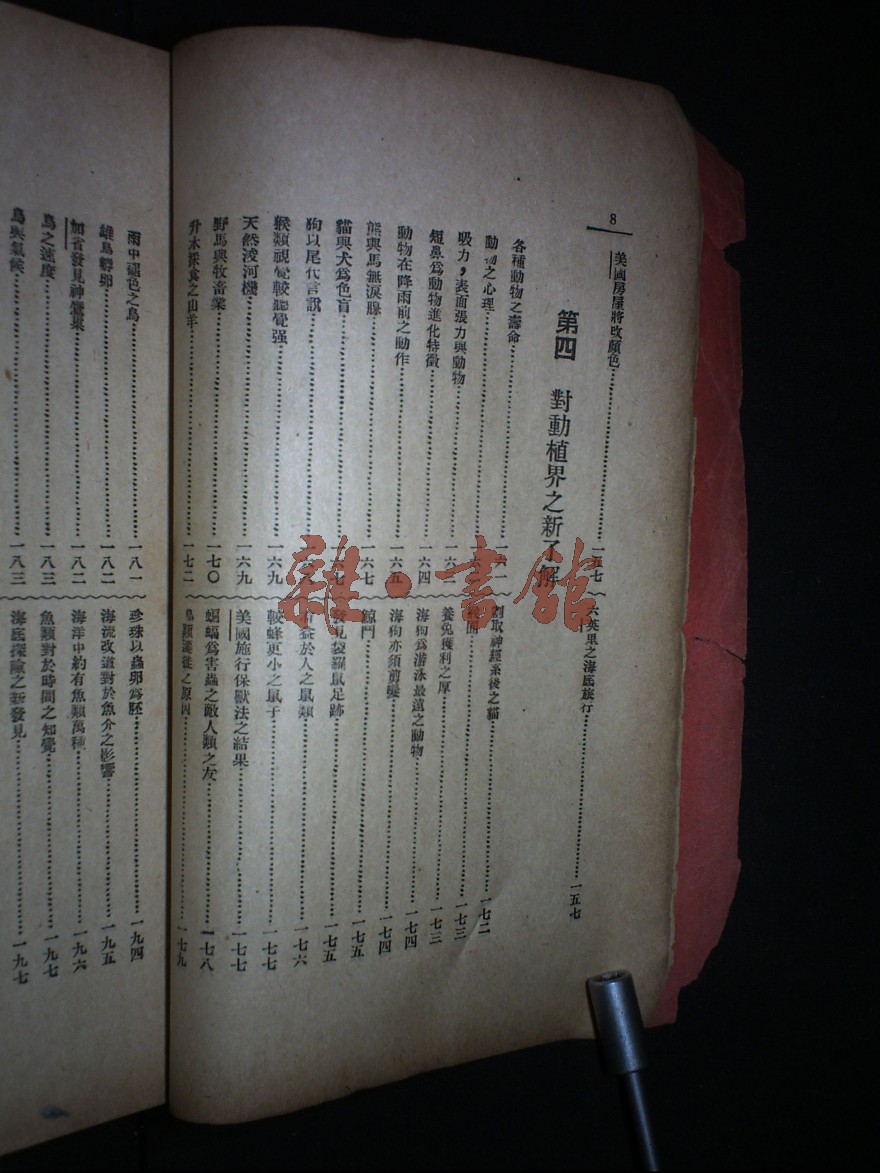 8
美國房屋將改顏色……一五七
六英里之海底旅行……一五七
第四 對動植界之新了解
各種動物之壽命
動物之心理……一六一
吸力，表面張力與動物……一六二
短鼻爲動物進化特徵……一六四
動物在降雨前之動作……一六五
熊與馬無淚腺……一六七
貓與犬爲色盲……一六七
狗以尾代言說
猴類視覺較聽覺强……一六九
天然浚河機……一六九
野馬與牧畜業……一七〇
升木採食之山羊……一七二
割取神經系後之貓……一七二
一七三
養兔獲利之厚……一七三
海狗爲游泳最遠之動物……一七四
海狗亦須剪髮……一七四
鯨鬥……一七五
發見袋羅鼠足跡……一七五
有益於人之鼠類……一七六
較蜂更小之鼠子……一七七
美國施行保獸法之結果……一七七
蝙蝠爲害蟲之敵人類之友……一七八
鳥類遷徙之原因……一七九
雨中變色之鳥……一八一
雄鳥孵卵……一八二
加省發見神鷲巢……一八二
鳥之速度……一八三
鳥與氣候……一八三
珍珠以蟲卵爲胚……一九四
海流改道對於魚介之影響……一九五
海洋中約有魚類萬種……一九六
魚類對於時間之知覺……一九七
海底探險之新發見……一九七
雜·書館